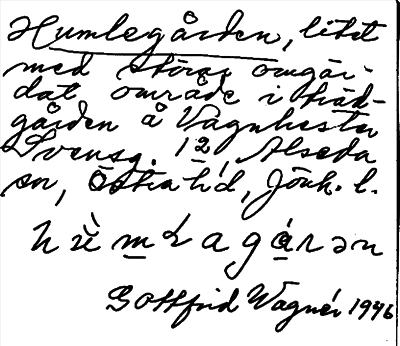 Humlegården, litet
med större omgär-
dat område i träd-
gården å Vagnhester
Svensg. 12, Alseda
sn, Östra hd, Jönk. l.
Gottfrid Wagnér 1946